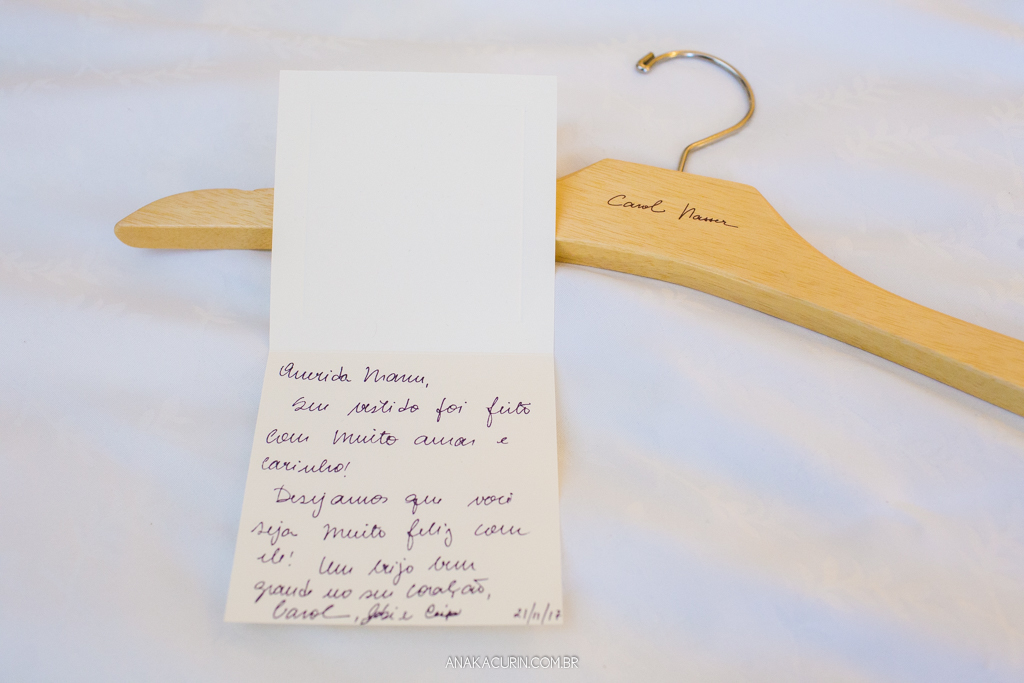 Carol Nasser
Querida Manu,
Seu vestido foi feito
com muito amor e
carinho!
Desejamos que você
seja muito feliz com
ele! Um beijo bem
grande no seu coração,
Carol, e
21/11/17
ANAKACURIN.COM.BR